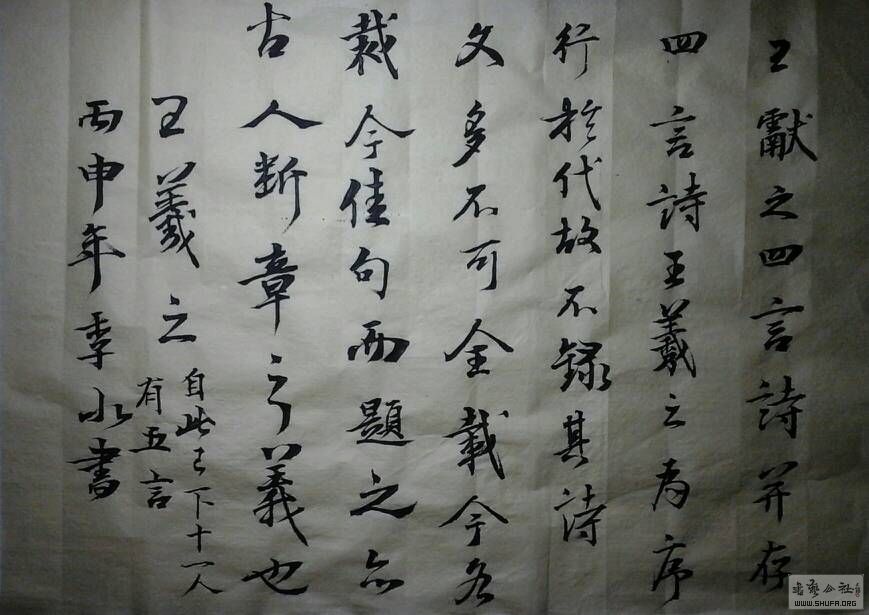 王獻之四言詩并存
四言詩王羲之為序
行於代故不錄其詩
文多不可全載今各
裁今佳句而題之亦
古人斷章之義也
王羲之
自此已下十一人
有五言
丙申年季水書
WWW.SHUFA.ORG